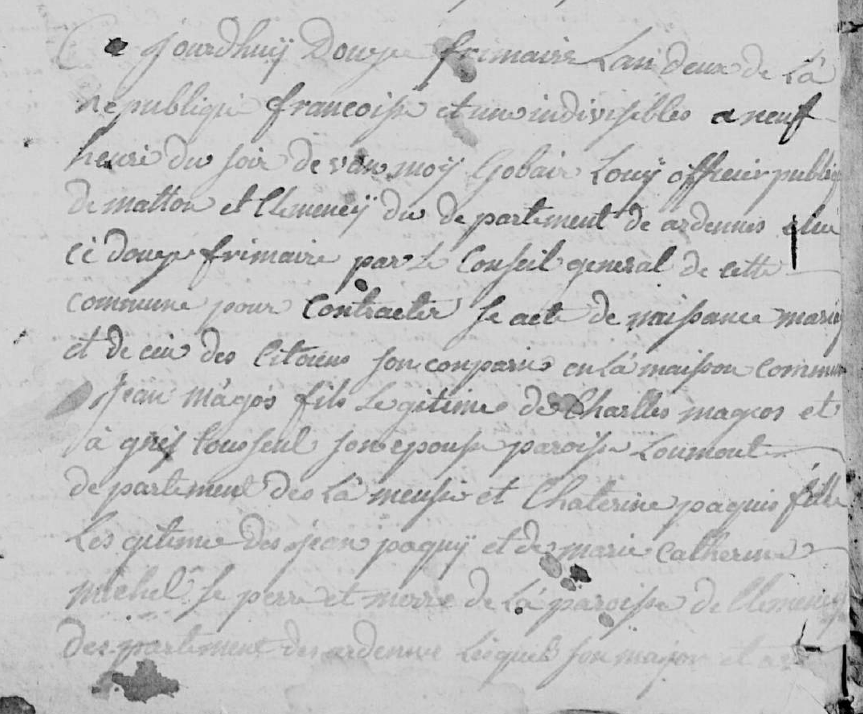 Ce jourdhuÿ Douze frimaire Lan deux de Lá
republique francoisse et une indivisibles a neuf
heure du soir de van moÿ Gobair Louÿ officier public
de matton et Clemeneÿ du de partement de ardennes eleu
ce douze frimaire par Le Conseil general de cette
commune pour contracter se acte de naissance mariag
et de cée des Citoiens son conparus en Lá maison commun
Jean mágos fils Legitime de Charlles magos et
á gnis tousseul son epousse paroisse Loumont
de partement des Lâ meusse et Chaterine paquis fille
Les gitime des jean paquÿ et de marie catherine
michel se perre et merre de Lá paroisse de Clemeneÿ
des partement des ardenne Lesquels son major et